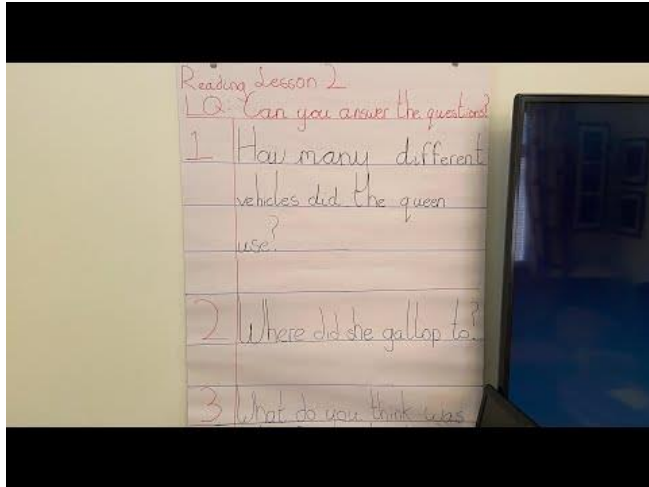 Reading Lesson 2
LQ: Can you answer the questions?
1 How many different
vehicles did the queen
use?
2 Where did she gallop to?
3 What do you think was